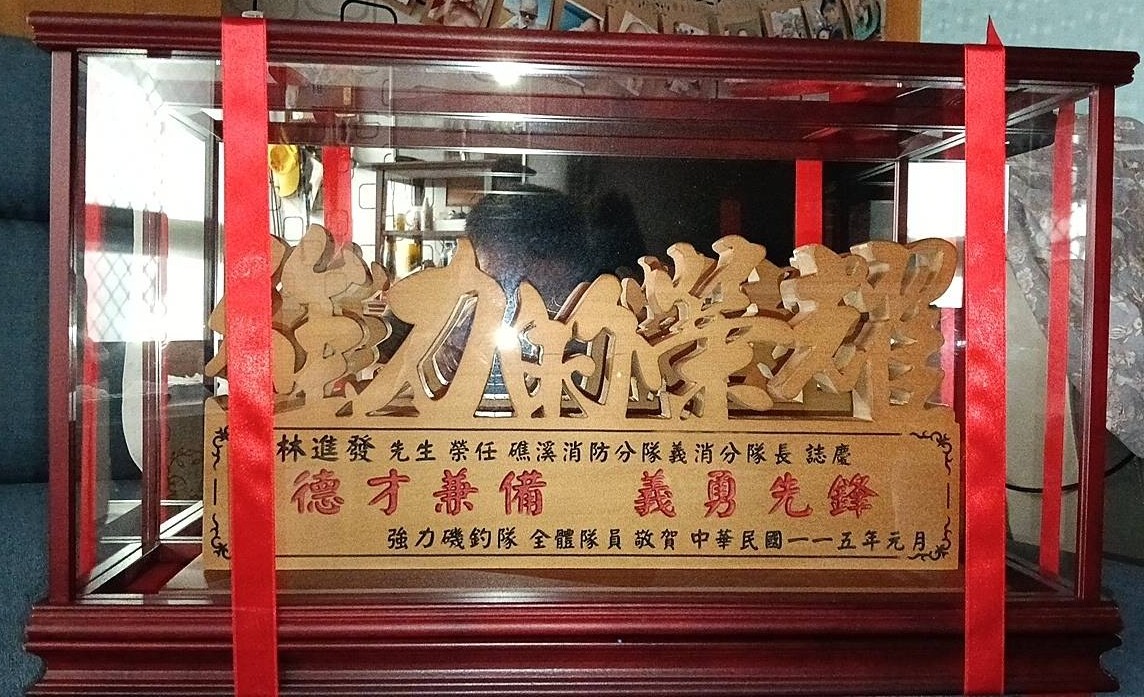 強力的榮耀
林進發 先生 榮任 礁溪消防分隊義消分隊長 誌慶
德才兼備 義勇先鋒
強力磯釣隊 全體隊員 敬賀 中華民國一一五年元月